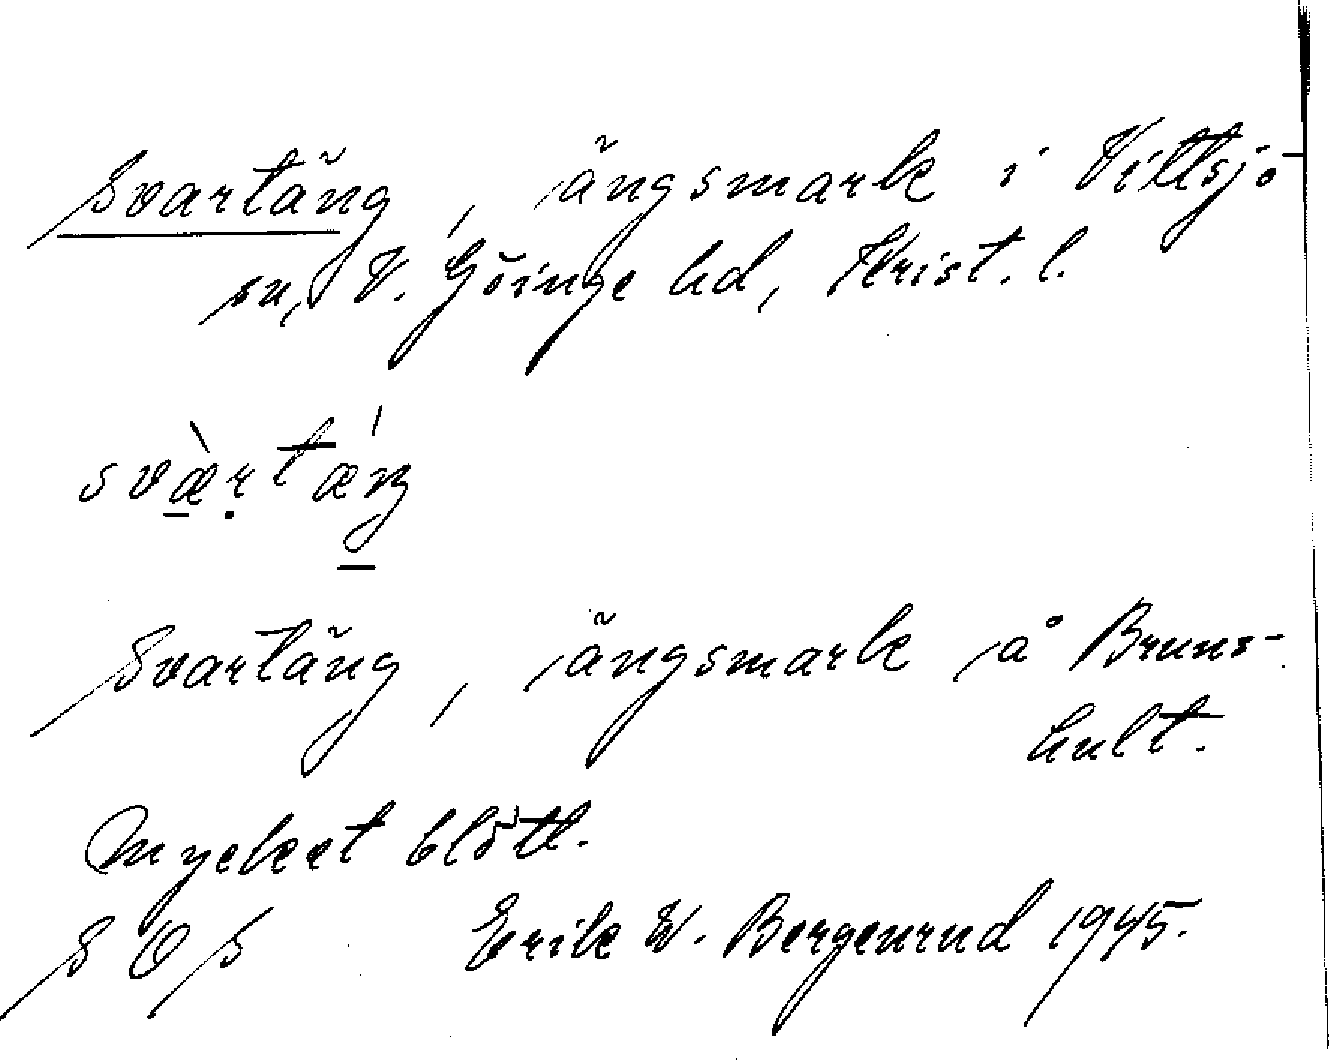 Svartäng, ängsmark i Vittsjö
sn, V. Göinge hd, Krist. l.
svæ̀rtǽŋ
Svartäng, ängsmark å Bruns-
hult.
Mycket blött.
S O S Erik W. Bergenrud 1945.